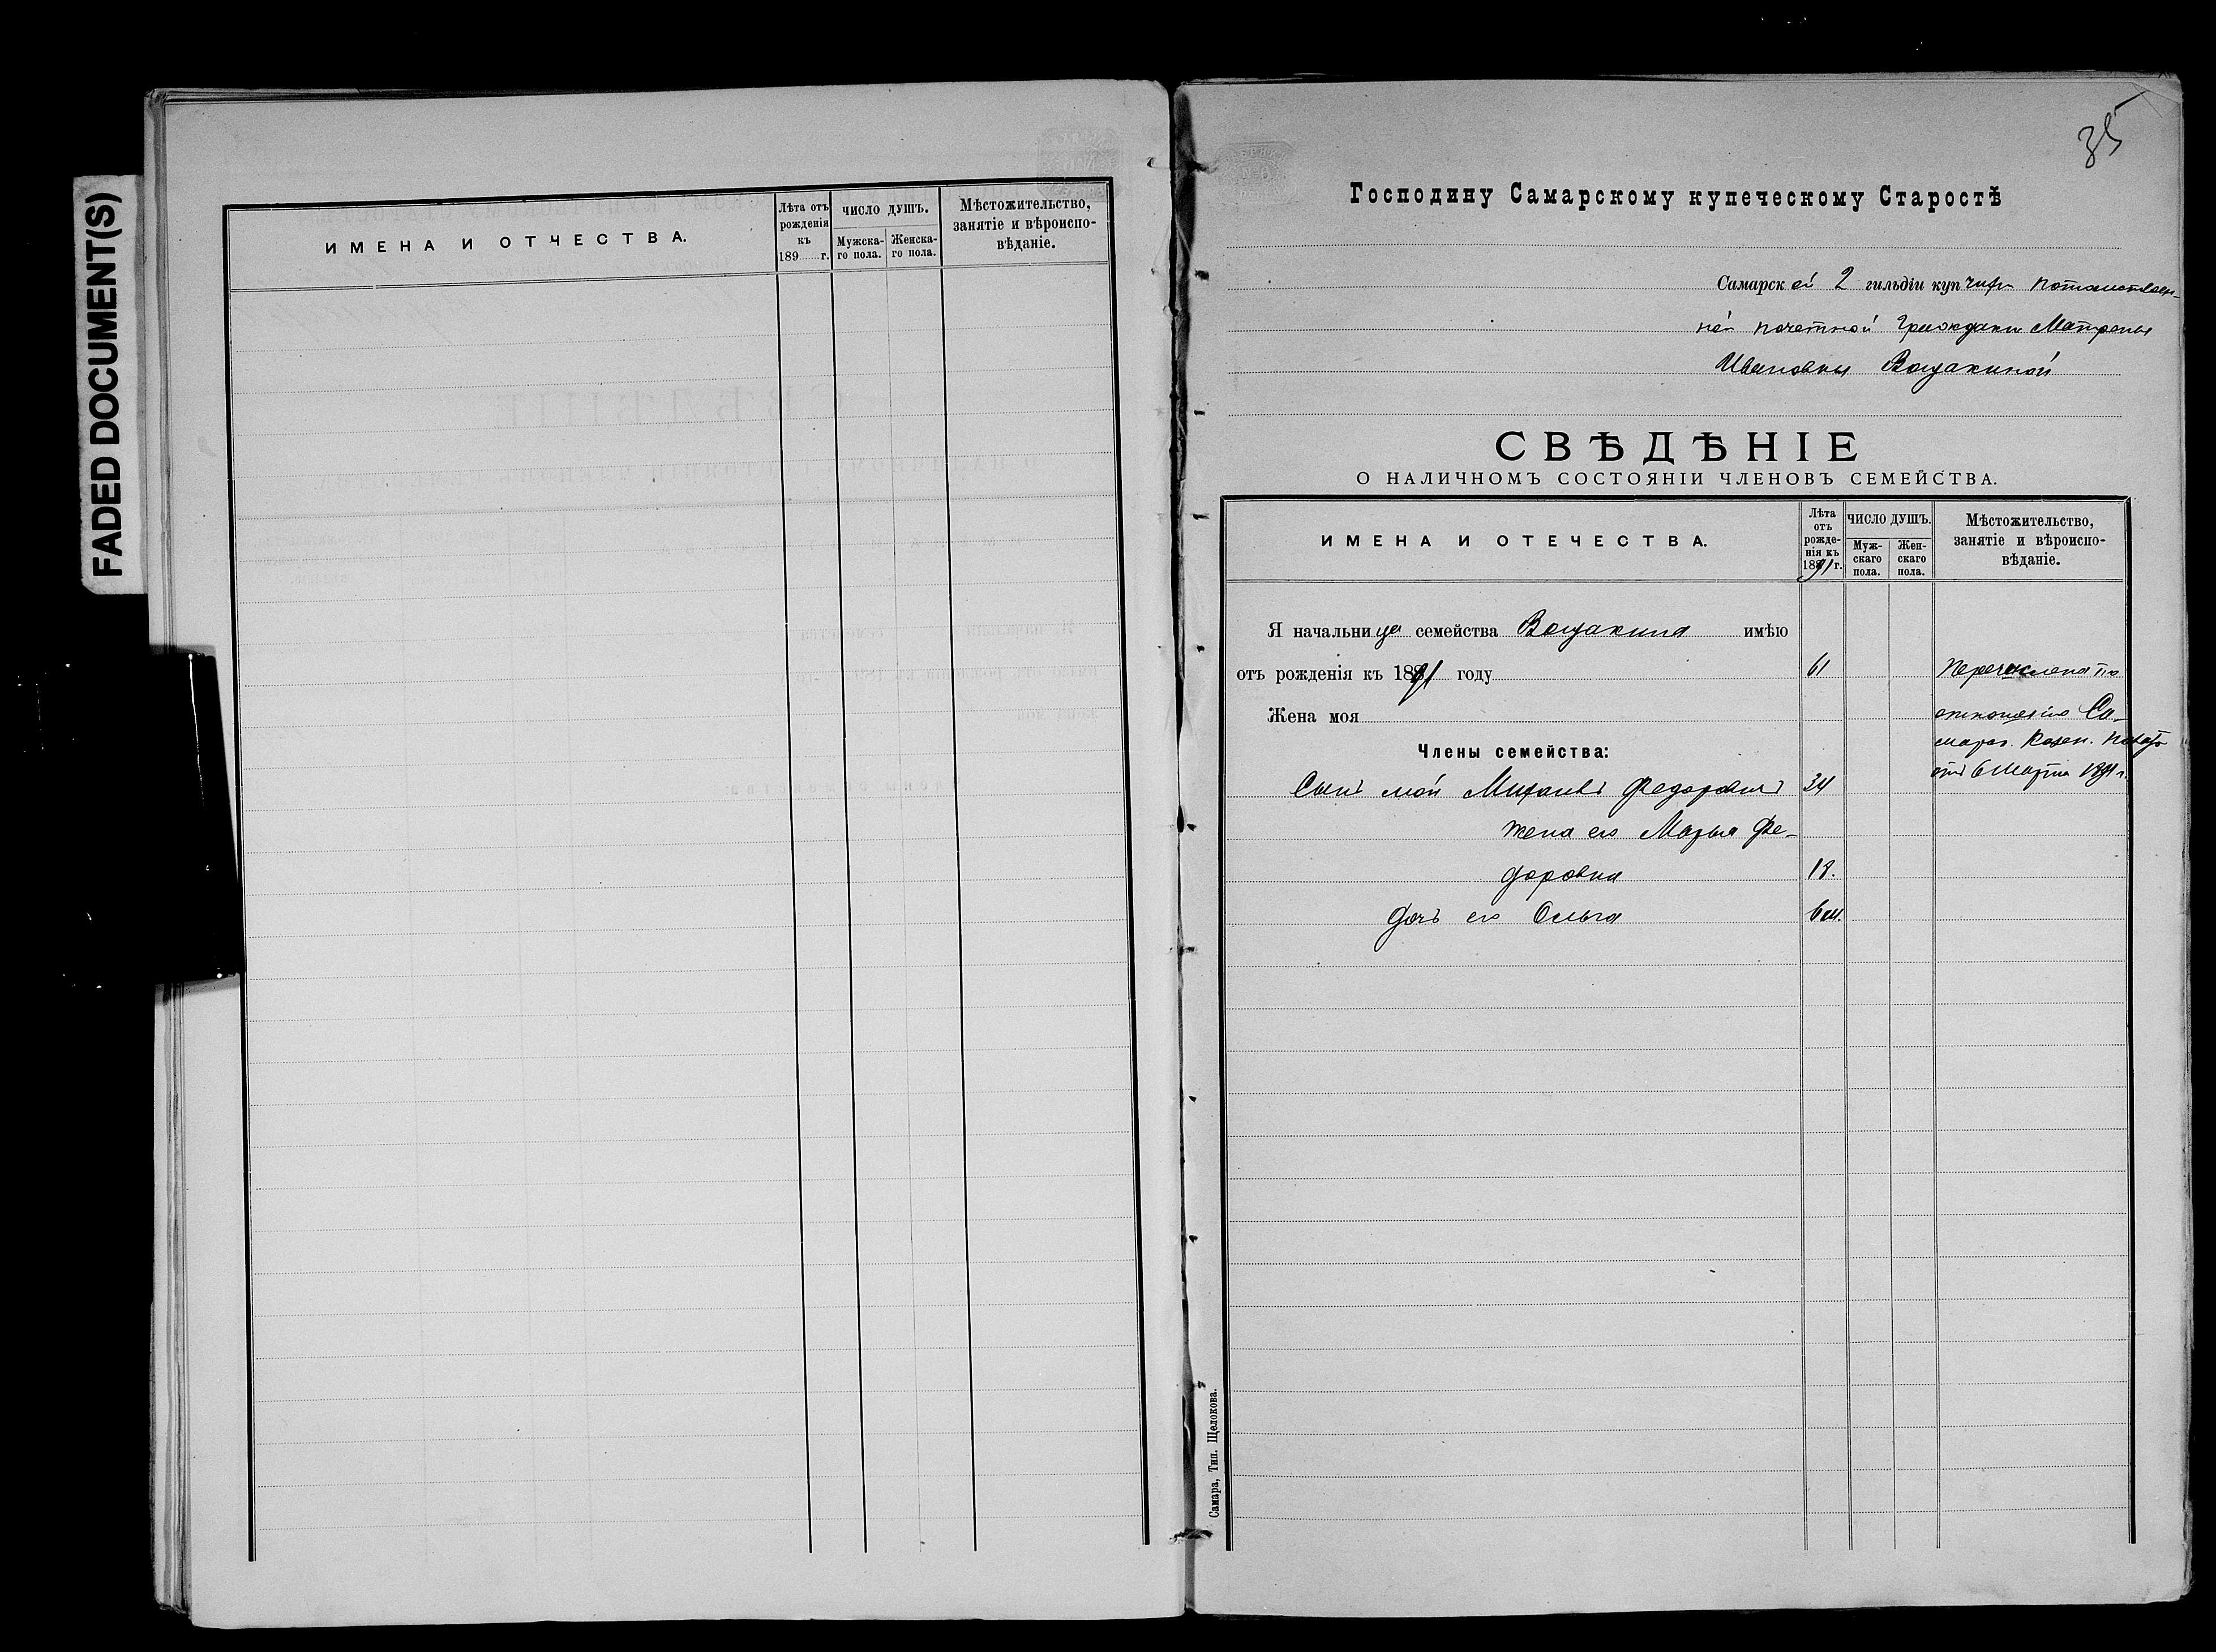 FADED DOCUMENT(S)
ИМЕНА И ОТЧЕСТВА.
Лѣта отъ рожденія къ 189 г.
ЧИСЛО ДУШЪ.
Мужска-го пола.
Женска-го пола.
Мѣстожительство, занятіе и вѣроиспо-вѣданіе.
35
Господину Самарскому купеческому Старостѣ
Самарской 2 гильдіи купчихи потомствен-
ной почетной Гражданки Матрены
Ивановны Вощакиной
СВѢДѢНІЕ
О НАЛИЧНОМЪ СОСТОЯНІИ ЧЛЕНОВЪ СЕМЕЙСТВА.
ИМЕНА И ОТЕЧЕСТВА.
Лѣта отъ рожде-нія къ 1891 г.
ЧИСЛО ДУШЪ.
Муж-скаго пола.
Жен-скаго пола.
Мѣстожительство, занятіе и вѣроиспо-вѣданіе.
Я начальница семейства Вощакина имѣю
отъ рожденія къ 1891 году 61 Перечислена по
Жена моя отношенію Са-
Члены семейства: марс. Казен. Палаты
Сынъ мой Михаилъ Федоровичъ 34 отъ 6 Марта 1891 г.
жена его Марья Фе-
доровна 18.
дочь его Ольга 6 м.
Самара, Тип. Щелокова.